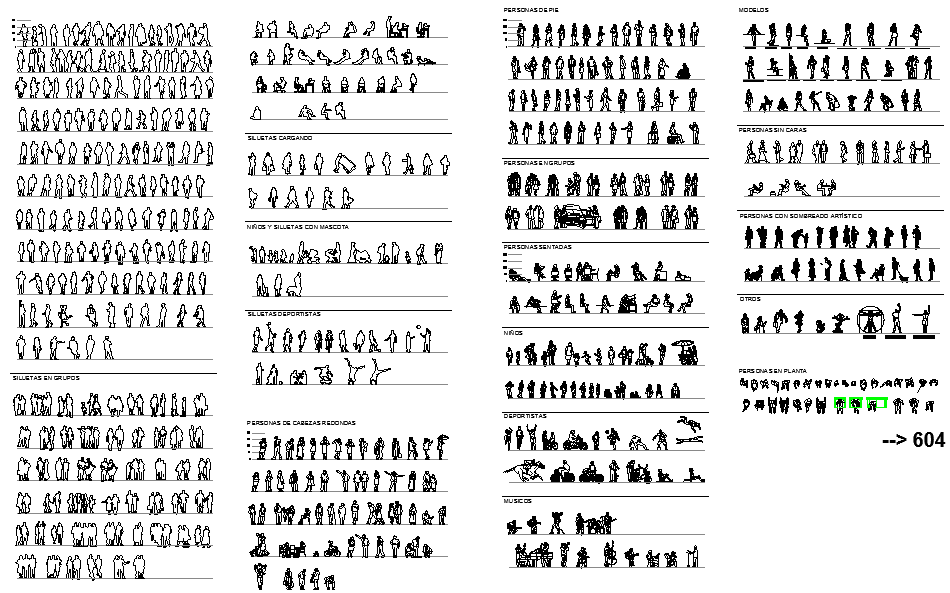 SILUETAS EN GRUPOS
SILUETAS CARGANDO
NIÑOS Y SILUETAS CON MASCOTA
SILUETAS DEPORTISTAS
PERSONAS DE CABEZAS REDONDAS
PERSONAS DE PIE
PERSONAS EN GRUPOS
PERSONAS SENTADAS
NIÑOS
DEPORTISTAS
MUSICOS
MODELOS
PERSONAS SIN CARAS
PERSONAS CON SOMBREADO ARTÍSTICO
OTROS
PERSONAS EN PLANTA
--> 604